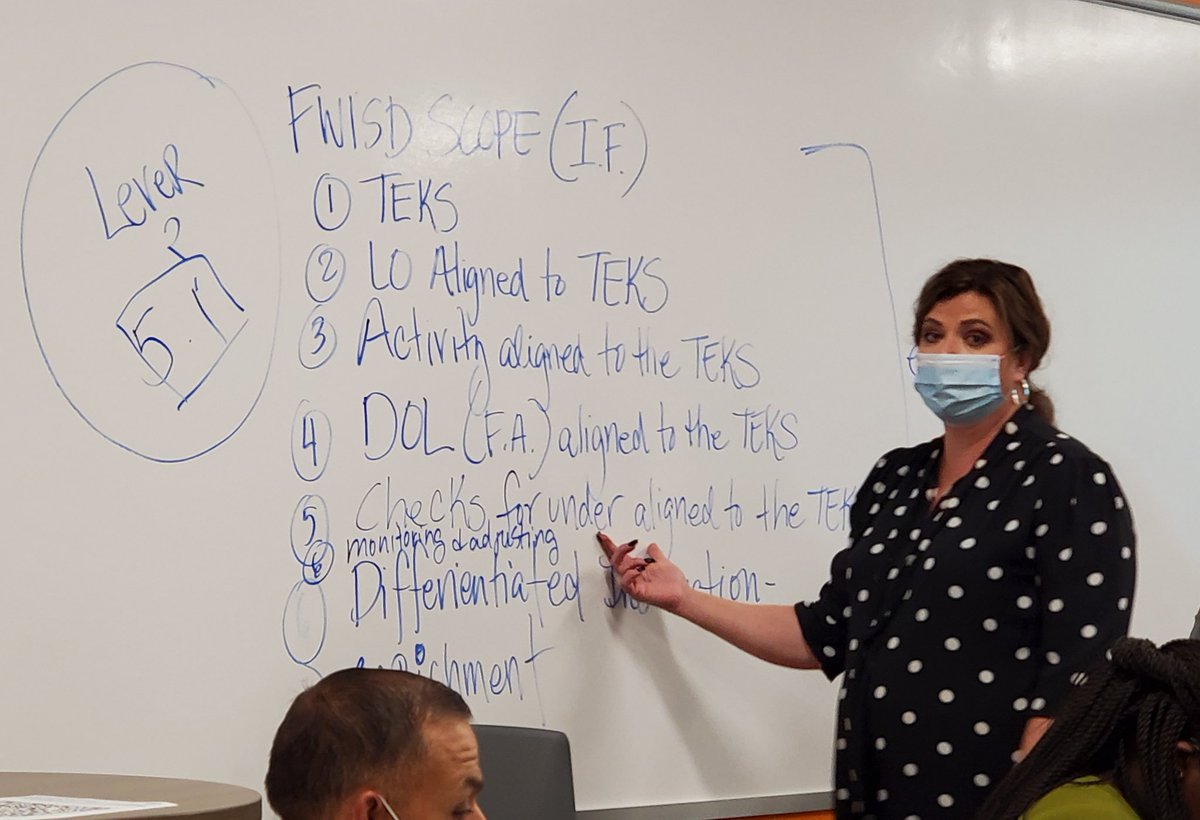 Lever
5.1
FWISD SCOPE (I.F.)
① TEKS
② LO Aligned to TEKS
③ Activity aligned to the TEKS
④ DOL (F.A.) aligned to the TEKS
⑤ Checks for under aligned to the TEK
⑥ monitoring & adjusting
Differientiated